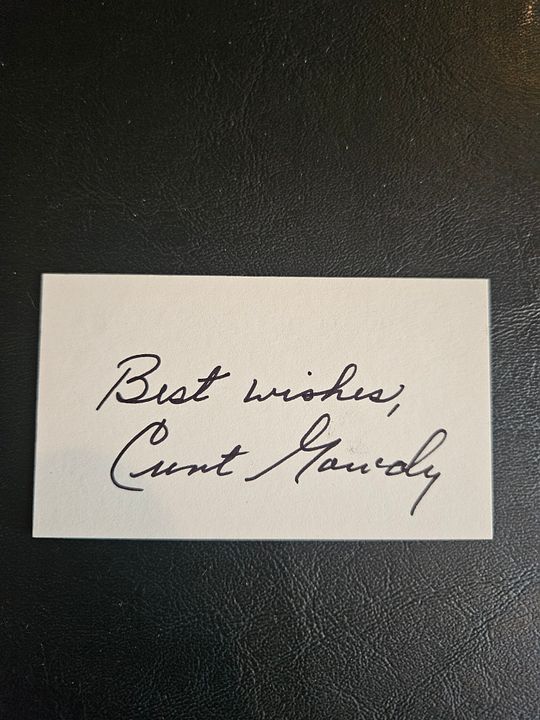 Best wishes,
Curt Gowdy